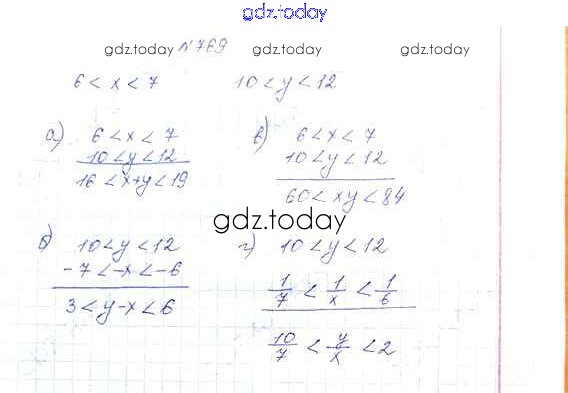 gdz.today
gdz.today №769 gdz.today gdz.today
6 < x < 7 10 < y < 12
а) 6 < x < 7
10 < y < 12
16 < x+y < 19
в) 6 < x < 7
10 < y < 12
60 < xy < 84
gdz.today
б) 10 < y < 12
-7 < -x < -6
3 < y-x < 6
г) 10 < y < 12
1/7 < 1/x < 1/6
10/7 < y/x < 2
gdz.today gdz.today